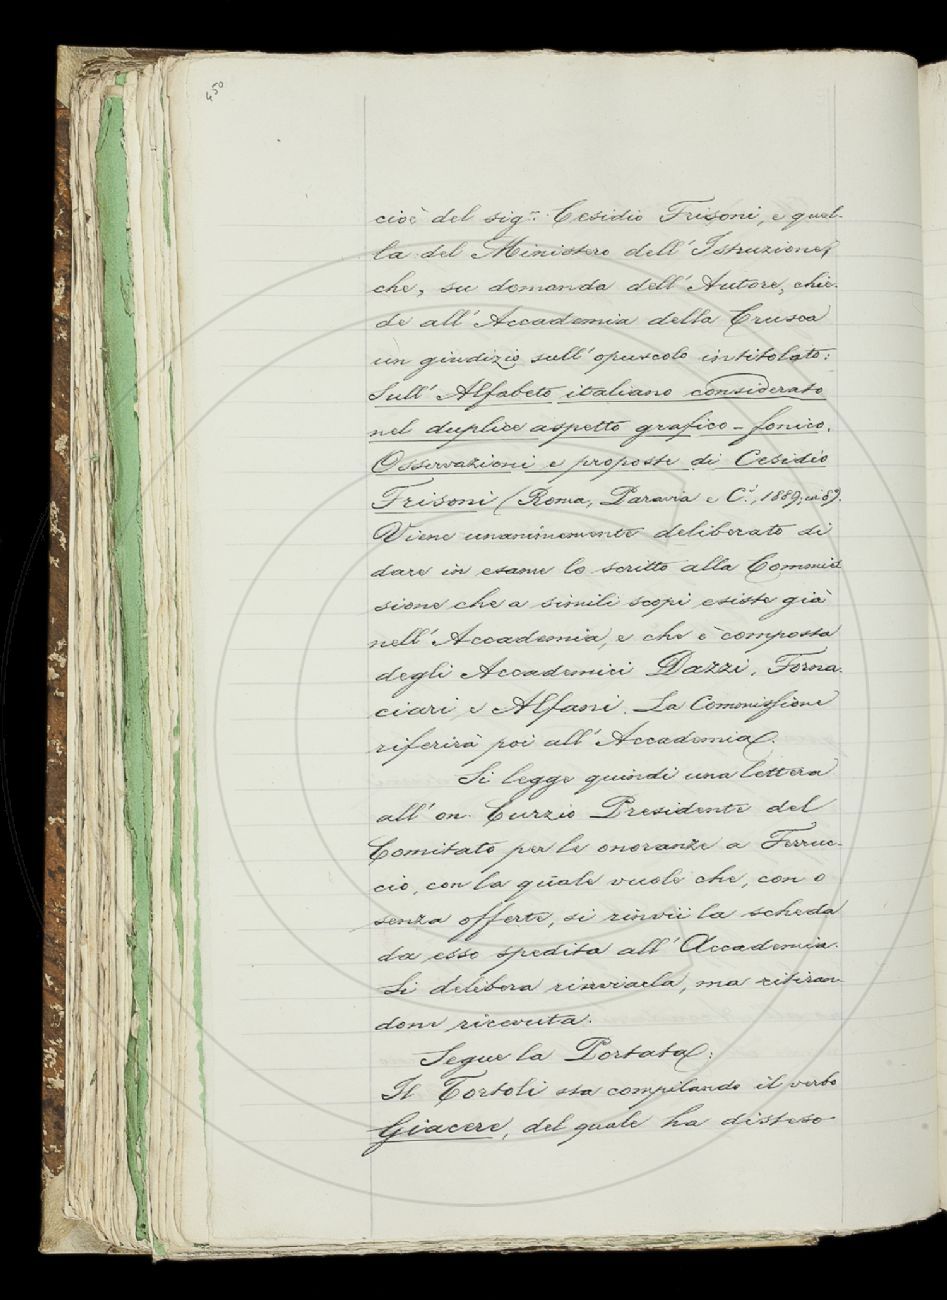 450
cioè del sigr. Cesidio Frisoni, e quel-
la del Ministero dell'Istruzione,
che, su domanda dell'Autore, chie-
de all'Accademia della Crusca
un giudizio sull'opuscolo intitolato:
Sull'Alfabeto italiano considerato
nel duplice aspetto grafico-fonico.
Osservazioni e proposte di Cesidio
Frisoni (Roma, Paravia e C.i, 1889; in 8º).
Viene unanimemente deliberato di
dare in esame lo scritto alla Commis
sione che a simili scopi esiste già
nell'Accademia, e che è composta
degli Accademici Dazzi, Forna-
ciari e Alfani. La Commissione
riferirà poi all'Accademia.
Si legge quindi una lettera
all'on. Curzio Presidente del
Comitato per le onoranze a Ferruc-
cio, con la quale vuole che, con o
senza offerte, si rinvii la scheda
da esso spedita all'Accademia.
Si delibera rinviarla, ma ritiran-
done ricevuta.
Segue la Portata:
Il Tortoli sta compilando il verbo
Giacere, del quale ha disteso